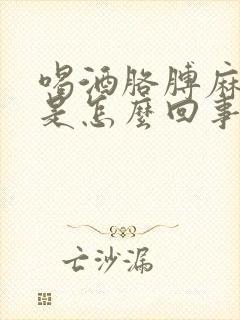 喝酒胳膊麻
是怎麼回事
亡沙漏